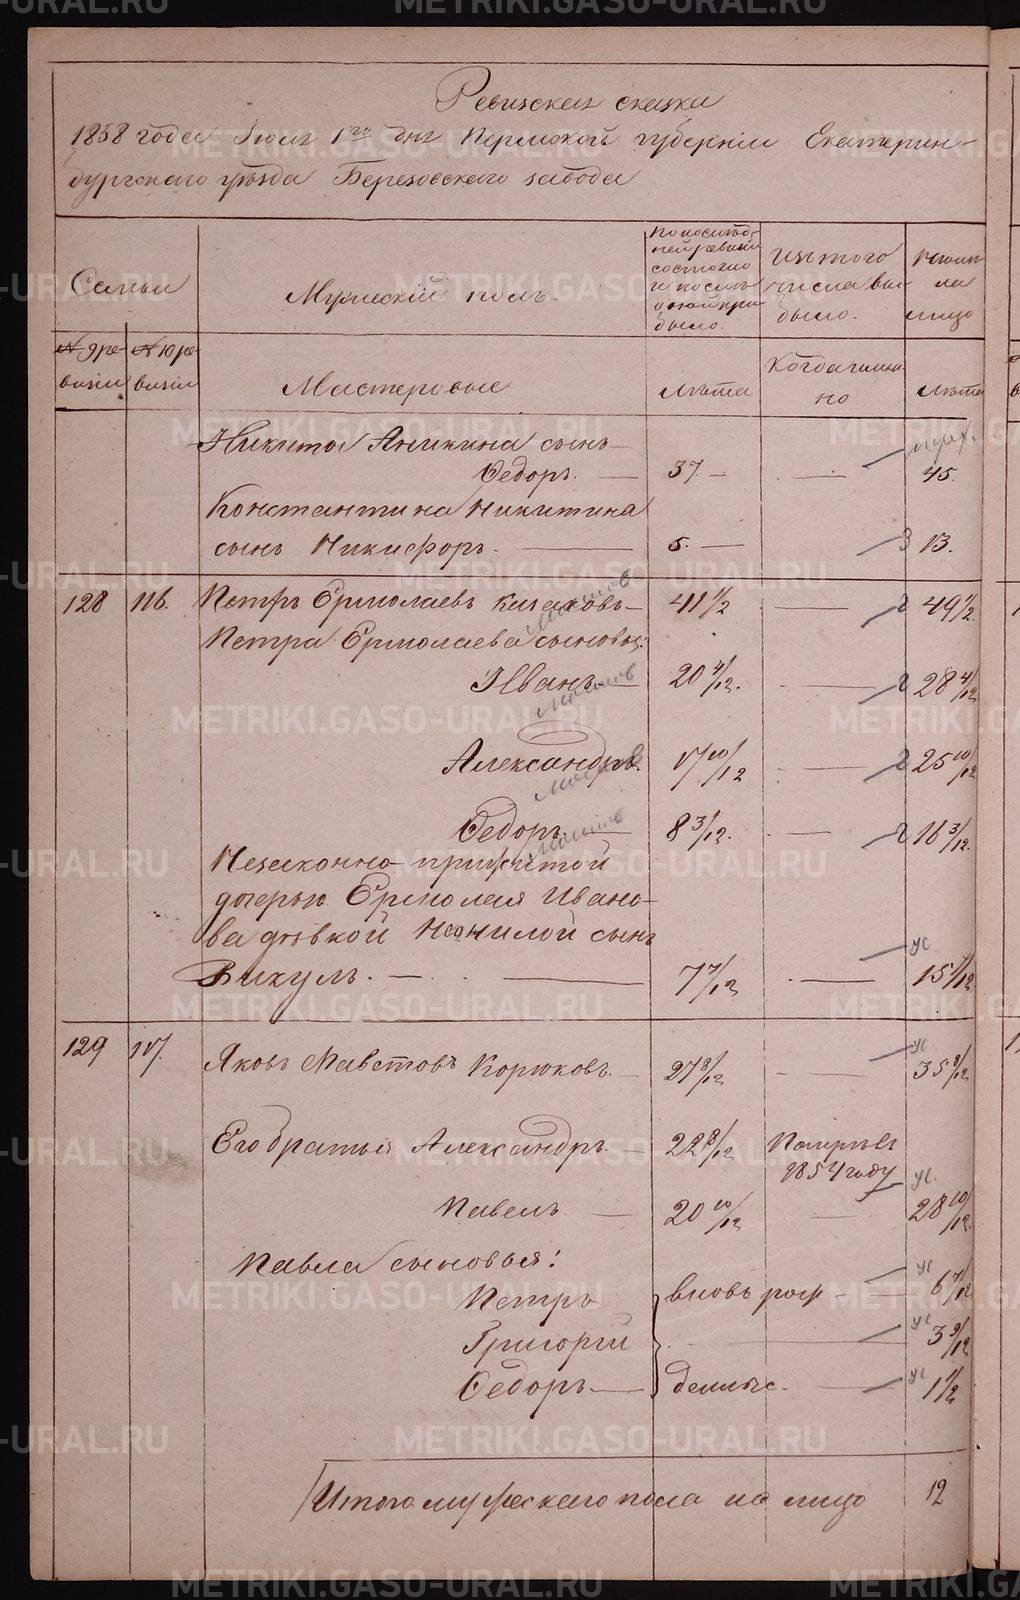 Ревизская сказка
1858 года Iюля 1го дня Пермской губернiи Екатерин-
бургскаго уѣзда Березовскаго завода
Семьи
Мужескiй полъ.
По послѣд-
ней ревизiи
состояло
и послѣ
оной при
было.
Изъ того
числа вы-
было.
Нынѣ
на
лицо
№ 9 ре-
визiи
№ 10 ре-
визiи
Мастеровые
Лѣта
Когда имен
но
Лѣта
Никиты Аникина сынъ
Ѳедоръ. 37. 45.
Константина Никитина
сынъ Никифоръ. 5. 13.
128 116. Петръ Ермолаевъ Казаковъ 41 1/2 49 1/2
Петра Ермолаева сыновья:
Иванъ 20 4/12. 28 4/12
Александръ. 17 10/12 25 10/12
Ѳедоръ 8 3/12. 16 3/12.
Незаконно прижитой
дочерью Ермолая Ивано-
ва дѣвкой Неонилой сынъ
Викулъ. 7 7/12 15 7/12
129 117. Яковъ Савстовъ Корюковъ. 27 8/12 35 8/12
Его братья Александръ. 22 8/12 Померъ въ
1854 году
Павелъ 20 10/12 28 10/12.
Павла сыновья:
Петръ вновь рож 6 7/12
Григорiй 3 9/12
Ѳедоръ денные. 1 1/2
Итого мужескаго пола на лицо 12
METRIKI.GASO-URAL.RU